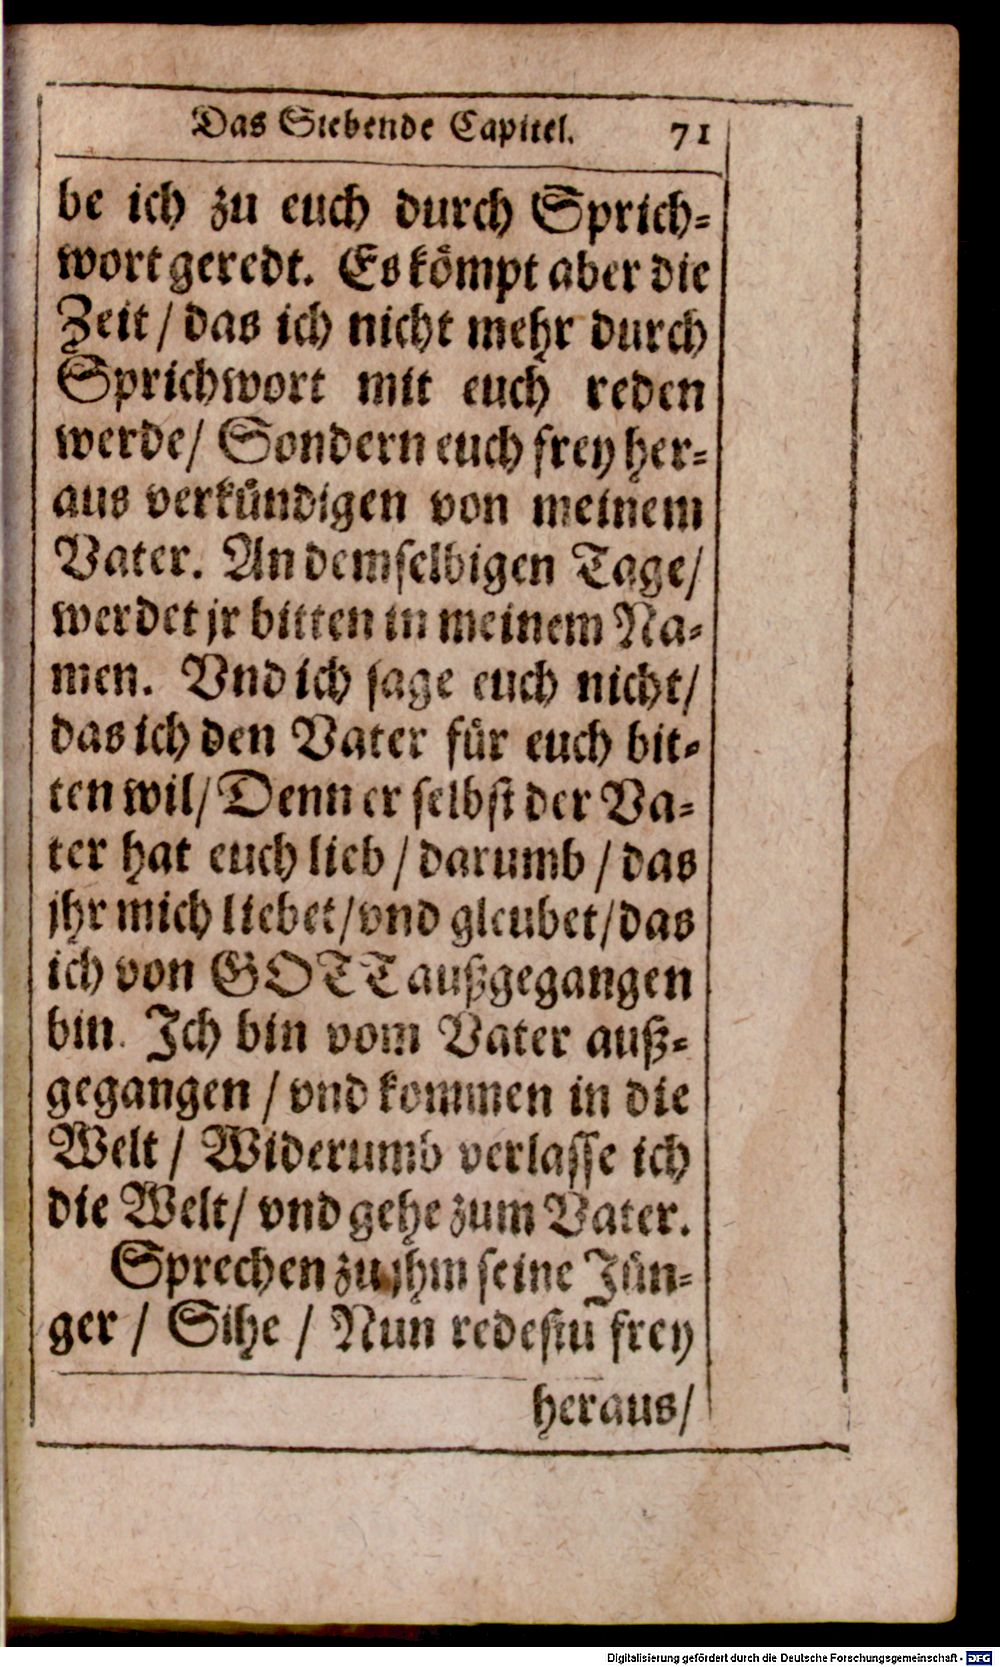 Das Siebende Capitel. 71
be ich zu euch durch Sprich-
wort geredt. Es kömpt aber die
Zeit / das ich nicht mehr durch
Sprichwort mit euch reden
werde / Sondern euch frey her-
aus verkündigen von meinem
Vater. An demselbigen Tage /
werdet jr bitten in meinem Na-
men. Vnd ich sage euch nicht /
das ich den Vater für euch bit-
ten wil / Denn er selbst der Va-
ter hat euch lieb / darumb / das
jhr mich liebet / vnd gleubet / das
ich von GOTT außgegangen
bin. Ich bin vom Vater auß-
gegangen / vnd kommen in die
Welt / Widerumb verlasse ich
die Welt / vnd gehe zum Vater.
Sprechen zu jhm seine Jün-
ger / Sihe / Nun redestu frey
heraus /
Digitalisierung gefördert durch die Deutsche Forschungsgemeinschaft - DFG